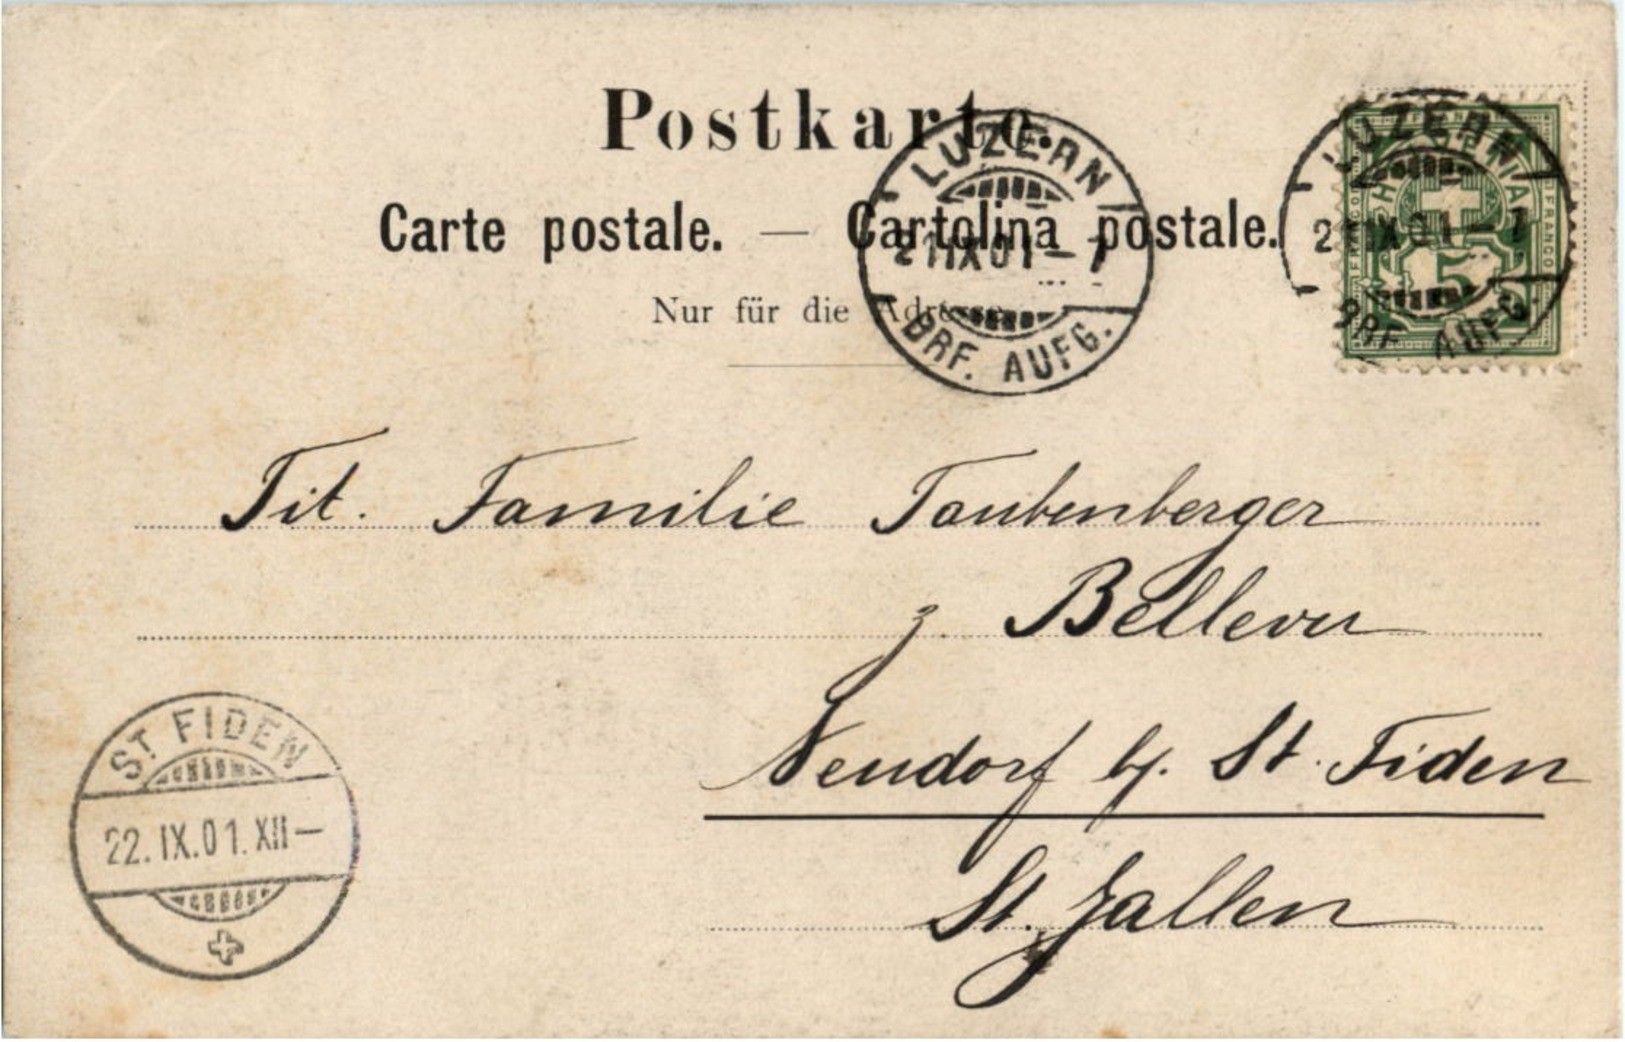 Postkarte.
LUZERN
21 IX 01 – 7
BRF. AUFG.
LUZERN
2 IX 01 – 7
BRF. AUFG.
FRANCO
5
FRANCO
Carte postale. — Cartolina postale.
Nur für die Adresse.
Tit. Familie Taubenberger
z. Bellevu
Neudorf b/. St. Fiden
St. Gallen
ST. FIDEN
22. IX. 01. XII –